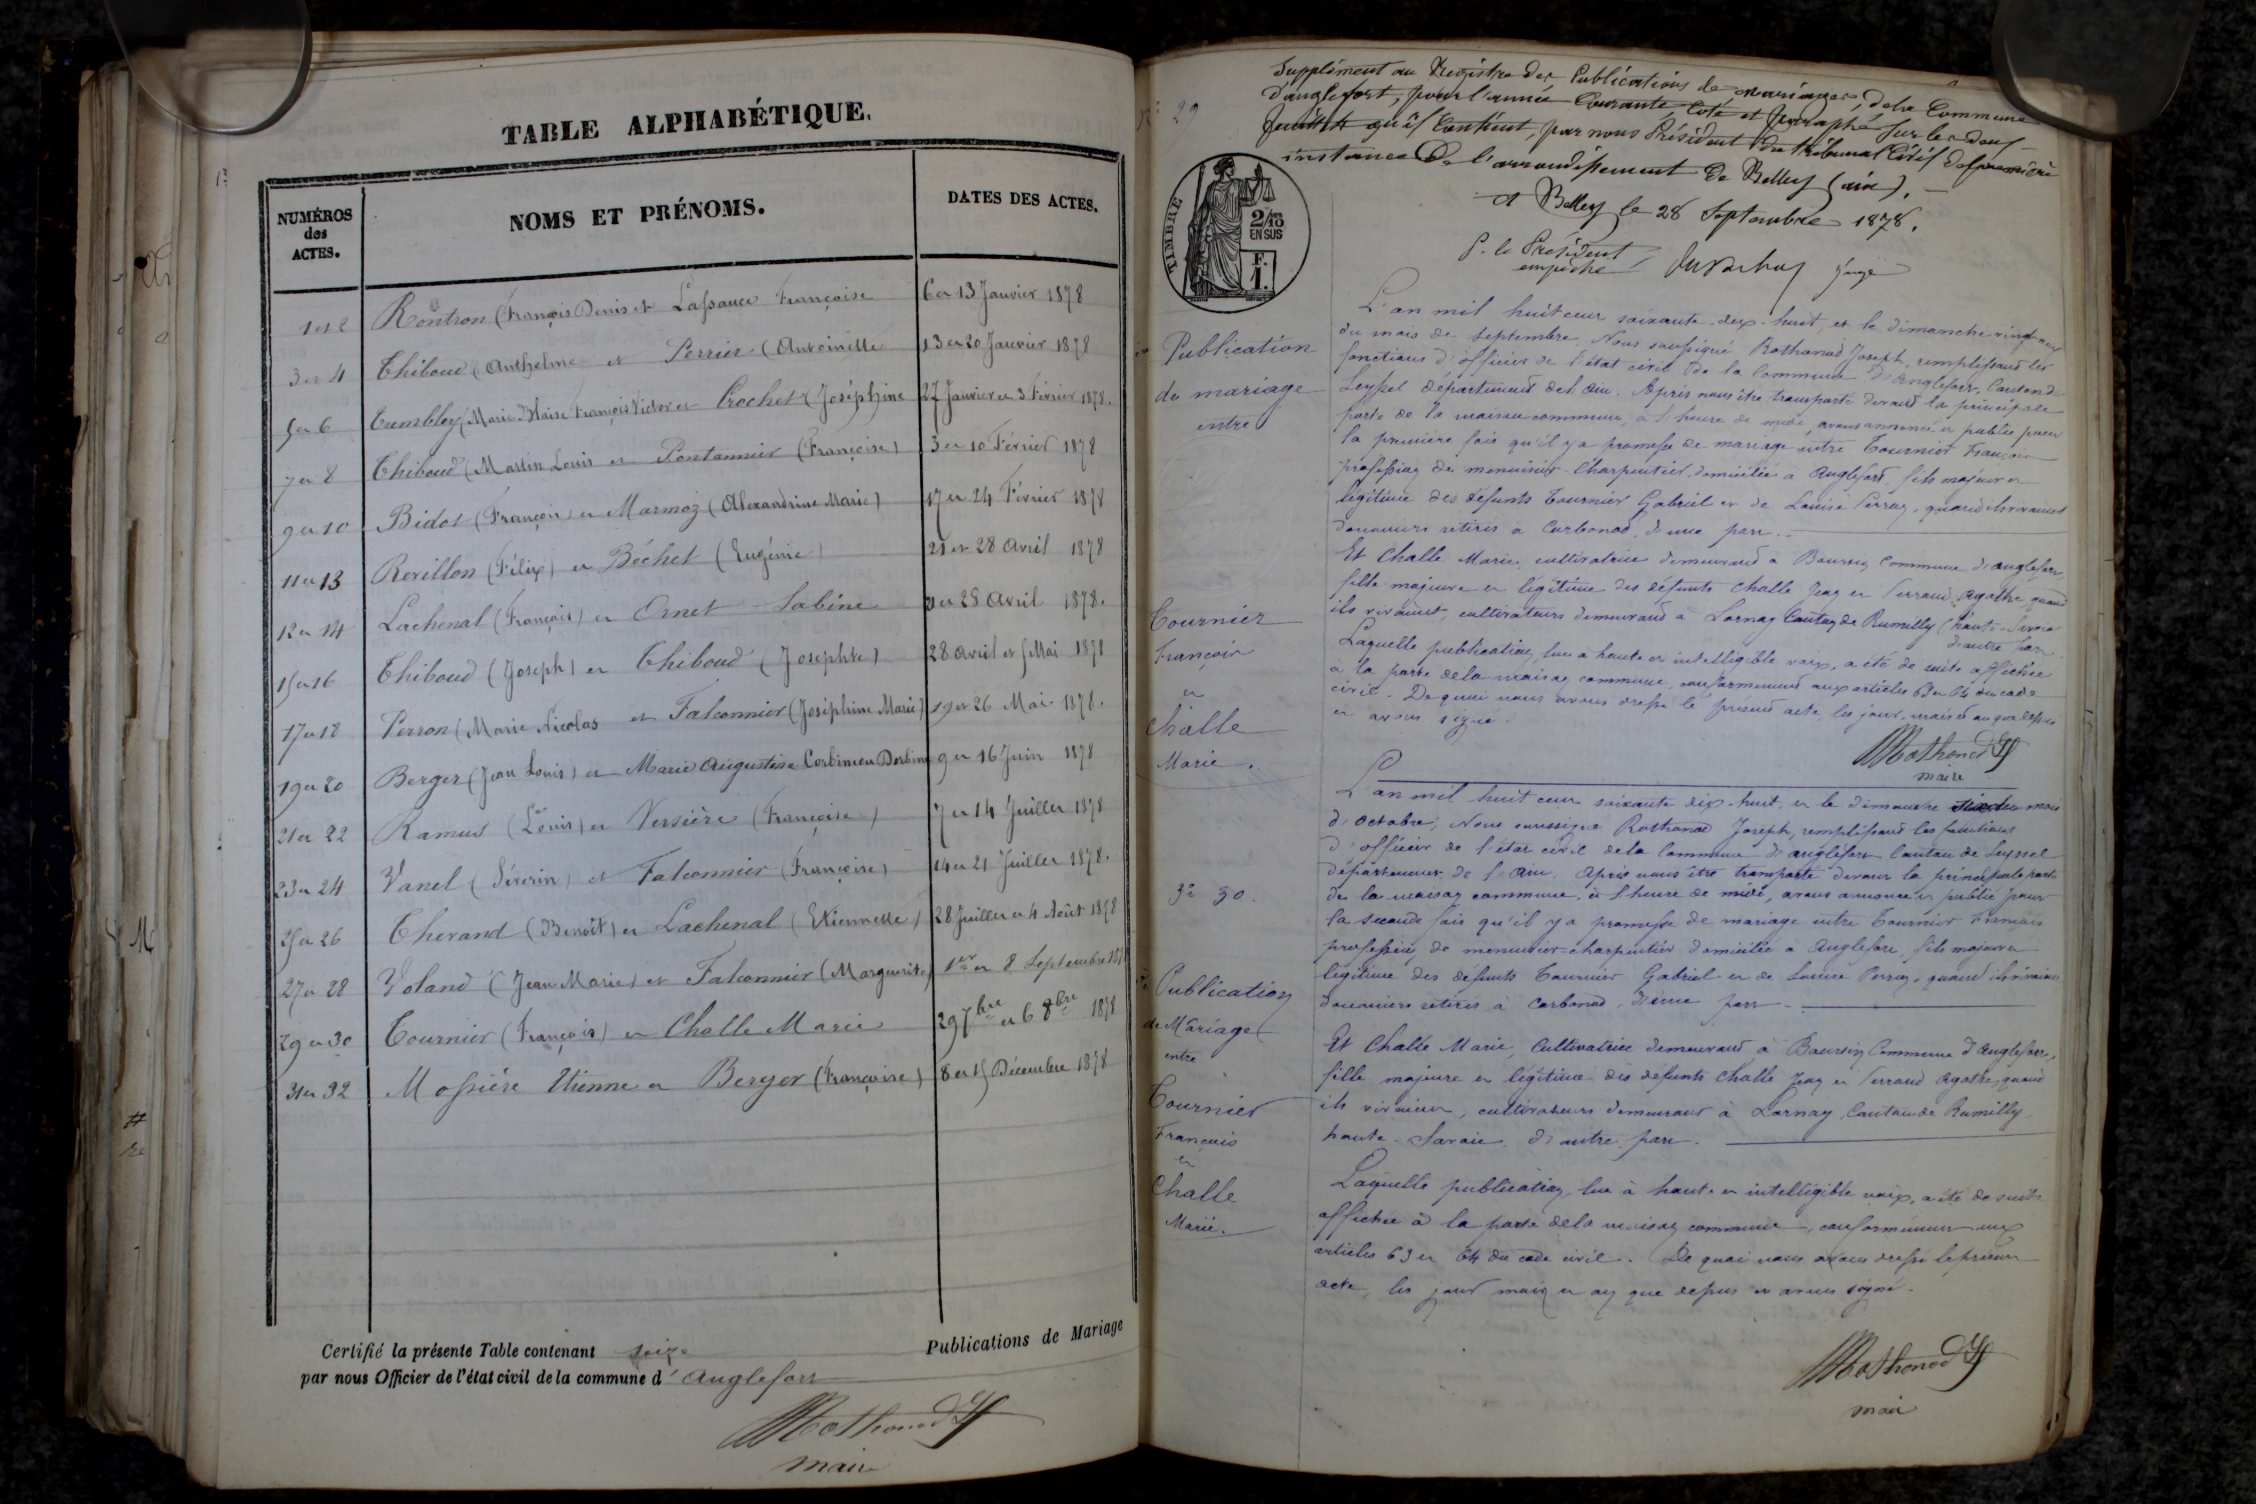 TABLE ALPHABÉTIQUE.
NUMÉROS des ACTES.
NOMS ET PRÉNOMS.
DATES DES ACTES.
1 et 2 Rontron (François Denis et Lassauce Françoise 6 et 13 Janvier 1878
3 et 4 Thiboud (Anthelme et Perrier (Antoinette 13 et 20 Janvier 1878
5 et 6 Cumbley (Marie Blaise François Victor et Crochet (Joséphine 27 Janvier et 3 Février 1878.
7 et 8 Thiboud (Martin Louis et Pontannier (Françoise) 3 et 10 Février 1878
9 et 10 Bidot (François) et Marmoz (Alexandrine Marie) 17 et 24 Février 1878
11 et 13 Revillon (Félix) et Béchet (Eugénie) 21 et 28 Avril 1878
12 et 14 Lachenal (François) et Ornet Sabine 21 et 28 Avril 1878.
15 et 16 Thiboud (Joseph) et Thiboud (Josephte) 28 avril et 5 Mai 1878
17 et 18 Perron (Marie Nicolas et Falconnier (Joséphine Marie) 19 et 26 Mai 1878.
19 et 20 Berger (Jean Louis) et Marie Augustine Corbineau Dorbine 9 et 16 Juin 1878
21 et 22 Ramus (Louis) et Versière (Françoise) 7 et 14 Juillet 1878
23 et 24 Vanel (Séverin) et Falconnier (Françoise) 14 et 21 Juillet 1878.
25 et 26 Therand (Benoît) et Lachenal (Etiennette) 28 Juillet et 4 Août 1878
27 et 28 Voland (Jean Marie) et Falconnier (Marguerite) 1er et 8 Septembre 1878
29 et 30 Tournier (François) et Challe Marie 29 7bre et 6 8bre 1878
31 et 32 Mossière Etienne et Berger (Françoise) 8 et 15 Décembre 1878
Certifié la présente Table contenant seize Publications de Mariage
par nous Officier de l'état civil de la commune d'Anglefort
Rothonod J
maire
Supplément au Registre des Publications de mariages, de la Commune
d'anglefort, pour l'année Courante Coté et Paraphé sur les deux
feuillets qu'il Contient, par nous Président du tribunal Civil de première
instance De l'arrondissement De Belley (ain).
A Belley le 28 Septembre 1878.
P. le Président
empêché
Juge
TIMBRE
2/10 EN SUS
F. 1.
No 29
Publication
de mariage
entre
Tournier
François
et
Challe
Marie.
L'an mil huit cent soixante-dix-huit, et le dimanche vingt neuf
du mois de Septembre, Nous soussigné Rothonod Joseph, remplissant les
fonctions d'officier de l'état civil de la Commune d'Anglefort, Canton de
Seyssel département de l'ain. Après nous être transporté devant la principale
porte de la maison commune, à l'heure de midi, avons annoncé et publié pour
la première fois qu'il y a promesse de mariage entre Tournier François
profession de menuisier-Charpentier, domicilié à Anglefort, fils majeur et
légitime des défunts Tournier Gabriel et de Louise Perray, quand ils vivaient
douaniers retirés à Corbonod, d'une part.
Et Challe Marie, cultivatrice demeurant à Boursin Commune d'anglefort,
fille majeure et légitime des défunts Challe Jean et Perraud Agathe quand
ils vivaient, cultivateurs demeurant à Lornay Canton de Rumilly (haute-Savoie
d'autre part
Laquelle publication, lue à haute et intelligible voix, a été de suite affichée
à la porte de la maison commune, conformément aux articles 63 et 64 du code
civil. De quoi nous avons dressé le présent acte, les jour, mois et an que dessus
et avons signé.
Rothonod J
maire
No 30.
Publication
de Mariage
entre
Tournier
François
et
Challe
Marie.
L'an mil huit cent soixante dix-huit, et le dimanche six du mois
d'Octobre, Nous soussigné Rothonod Joseph, remplissant les fonctions
d'officier de l'état civil de la Commune d'anglefort Canton de Seyssel
département de l'Ain. Après nous être transporté devant la principale porte
de la maison commune, à l'heure de midi, avons annoncé et publié pour
la seconde fois qu'il y a promesse de mariage entre Tournier François
profession de menuisier-charpentier domicilié à Anglefort, fils majeur et
légitime des défunts Tournier Gabriel et de Louise Perray, quand ils vivaient
douaniers retirés à Corbonod, d'une part.
Et Challe Marie, Cultivatrice demeurant à Boursin Commune d'Anglefort,
fille majeure et légitime des défunts Challe Jean et Perraud Agathe, quand
ils vivaient, cultivateurs demeurant à Lornay, Canton de Rumilly
haute-Savoie, d'autre part.
Laquelle publication, lue à haute et intelligible voix, a été de suite
affichée à la porte de la maison commune, conformément aux
articles 63 et 64 du code civil. De quoi nous avons dressé le présent
acte, les jour mois et an que dessus et avons signé.
Rothonod J
maire